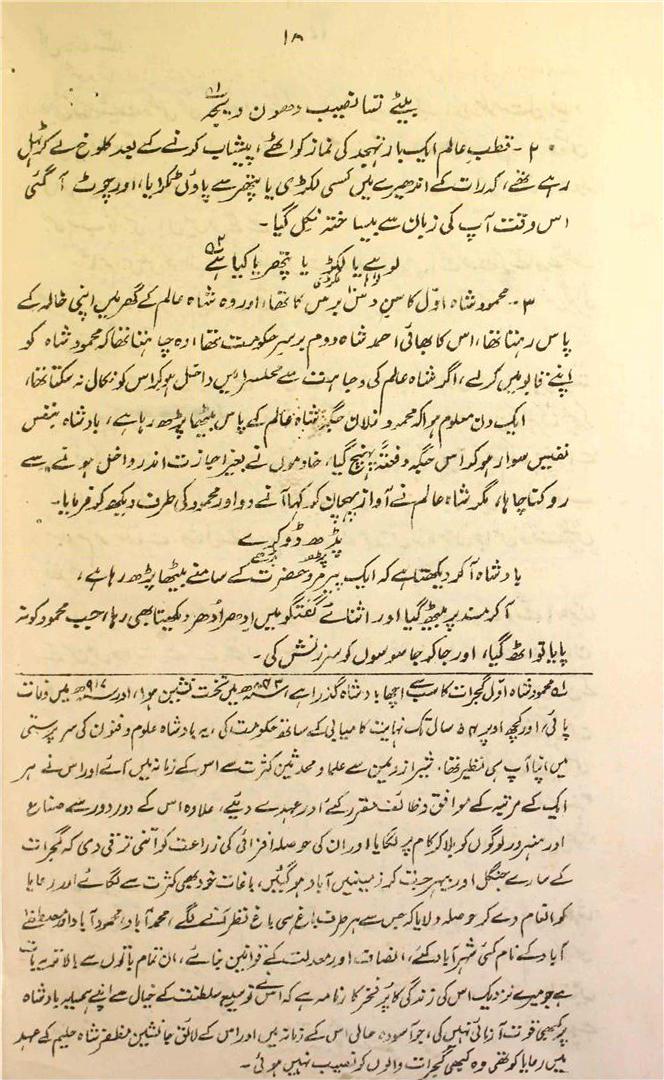 ۱۸
بیٹے تسا نصیب دھون دیتجہ
۲۔ قطب عالم ایک بار تہجد کی نماز کو اٹھے، پیشاب کرنے کے بعد کلوخ لے کر ٹہل
رہے تھے، کہ رات کے اندھیرے میں کسی لکڑی یا پتھر سے پاؤں ٹکرایا، اور چوٹ آ گئی
اس وقت آپ کی زبان سے بیساختہ نکل گیا۔
لوہے یا لکڑ یا پتھر یا کیا ہے
۳۔ محمود شاہ اوّل کا سن دش برس کا تھا، اور وہ شاہ عالم کے گھر میں اپنی خالہ کے
پاس رہتا تھا، اس کا بھائی احمد شاہ دوم برسر حکومت تھا، وہ چاہتا تھا کہ محمود شاہ کو
اپنے قابو میں کرلے، اگر شاہ عالم کی وجاہت سے محلسرا میں داخل ہو کر اس کو نکال نہ سکتا تھا،
ایک دن معلوم ہوا کہ محمود فلان جگہ شاہ عالم کے پاس بیٹھا پڑھ رہا ہے، بادشاہ بنفس
نفیس سوار ہو کر اس جگہ دفعتہً پہنچ گیا، خادموں نے بغیر اجازت اندر داخل ہونے سے
روکنا چاہا، مگر شاہ عالم نے آواز پہچان کر کہا آنے دو اور محمود کی طرف دیکھ کر فرمایا۔
پڑھ ڈوکرے
بادشاہ آ کر دیکھتا ہے کہ ایک پیر مرد حضرت کے سامنے بیٹھا پڑھ رہا ہے،
آ کر مسند پر بیٹھ گیا اور اثنائے گفتگو میں ادھر اُدھر دیکھتا بھی رہا، جب محمود کو نہ
پایا تو اٹھ گیا، اور جا کر جاسوسوں کو سرزنش کی۔
۱ محمود شاہ اوّل گجرات کا سب سے اچھا بادشاہ گذرا ہے، ۸۶۳ھ میں تخت نشین ہوا، اور ۹۱۷ھ میں وفات
پائی، اور کچھ اوپر ۵۴ سال تک نہایت کامیابی کے ساتھ حکومت کی، یہ بادشاہ علوم و فنون کی سرپرستی
میں اپنا آپ ہی نظیر تھا۔ شیراز و یمن سے علما و محدثین کثرت سے اس کے زمانہ میں آئے اور اس نے ہر
ایک کے مرتبہ کے موافق وظائف مقرر کئے اور عہدے دیئے، علاوہ اس کے دور دور سے صناع
اور ہنرور لوگوں کو بلا کر کام پر لگایا اور ان کی حوصلہ افزائی کی زراعت کو اتنی ترقی دی کہ گجرات
کے سارے جنگل اور بیہڑ جت کر زمینیں آباد ہو گئیں، باغات خود بھی کثرت سے لگائے اور رعایا
کو انعام دے کر حوصلہ دلایا کہ جس سے ہر طرف باغ ہی باغ نظر آنے لگے، محمد آباد، محمود آباد اور مصطفےٰ
آباد کے نام کئی شہر آباد کئے، انصاف اور معدلت کے قوانین بنائے، ان تمام باتوں سے بالاتر یہ بات
ہے جو میرے نزدیک اس کی زندگی کا پُر فخر کارنامہ ہے کہ اس نے توسیع سلطنت کے خیال سے اپنے ہمسایہ بادشاہ
پر کبھی قوت آزمائی نہیں کی، جو آسودہ حالی اس کے زمانہ میں اور اس کے لائق جانشین مظفر شاہ حلیم کے عہد
میں رعایا کو تھی وہ کبھی گجرات والوں کو نصیب نہیں ہوئی۔